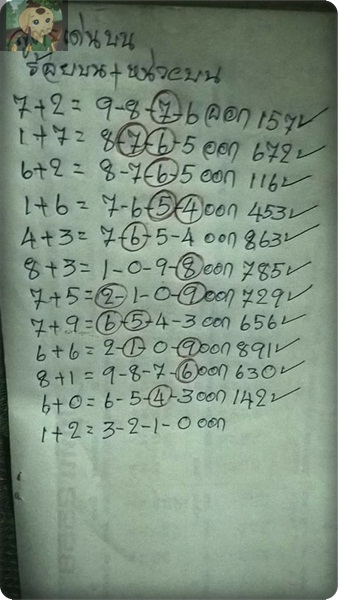 สูตรเด่นบน
ร้อยบน+หน่วยบน
7+2= 9-8-7-6 ออก 157✓
1+7= 8-7-6-5 ออก 672✓
6+2= 8-7-6-5 ออก 116✓
1+6= 7-6-5-4 ออก 453✓
4+3= 7-6-5-4 ออก 863✓
8+3= 1-0-9-8 ออก 785✓
7+5= 2-1-0-9 ออก 729✓
7+9= 6-5-4-3 ออก 656✓
6+6= 2-1-0-9 ออก 891✓
8+1= 9-8-7-6 ออก 630✓
6+0= 6-5-4-3 ออก 142✓
1+2= 3-2-1-0 ออก